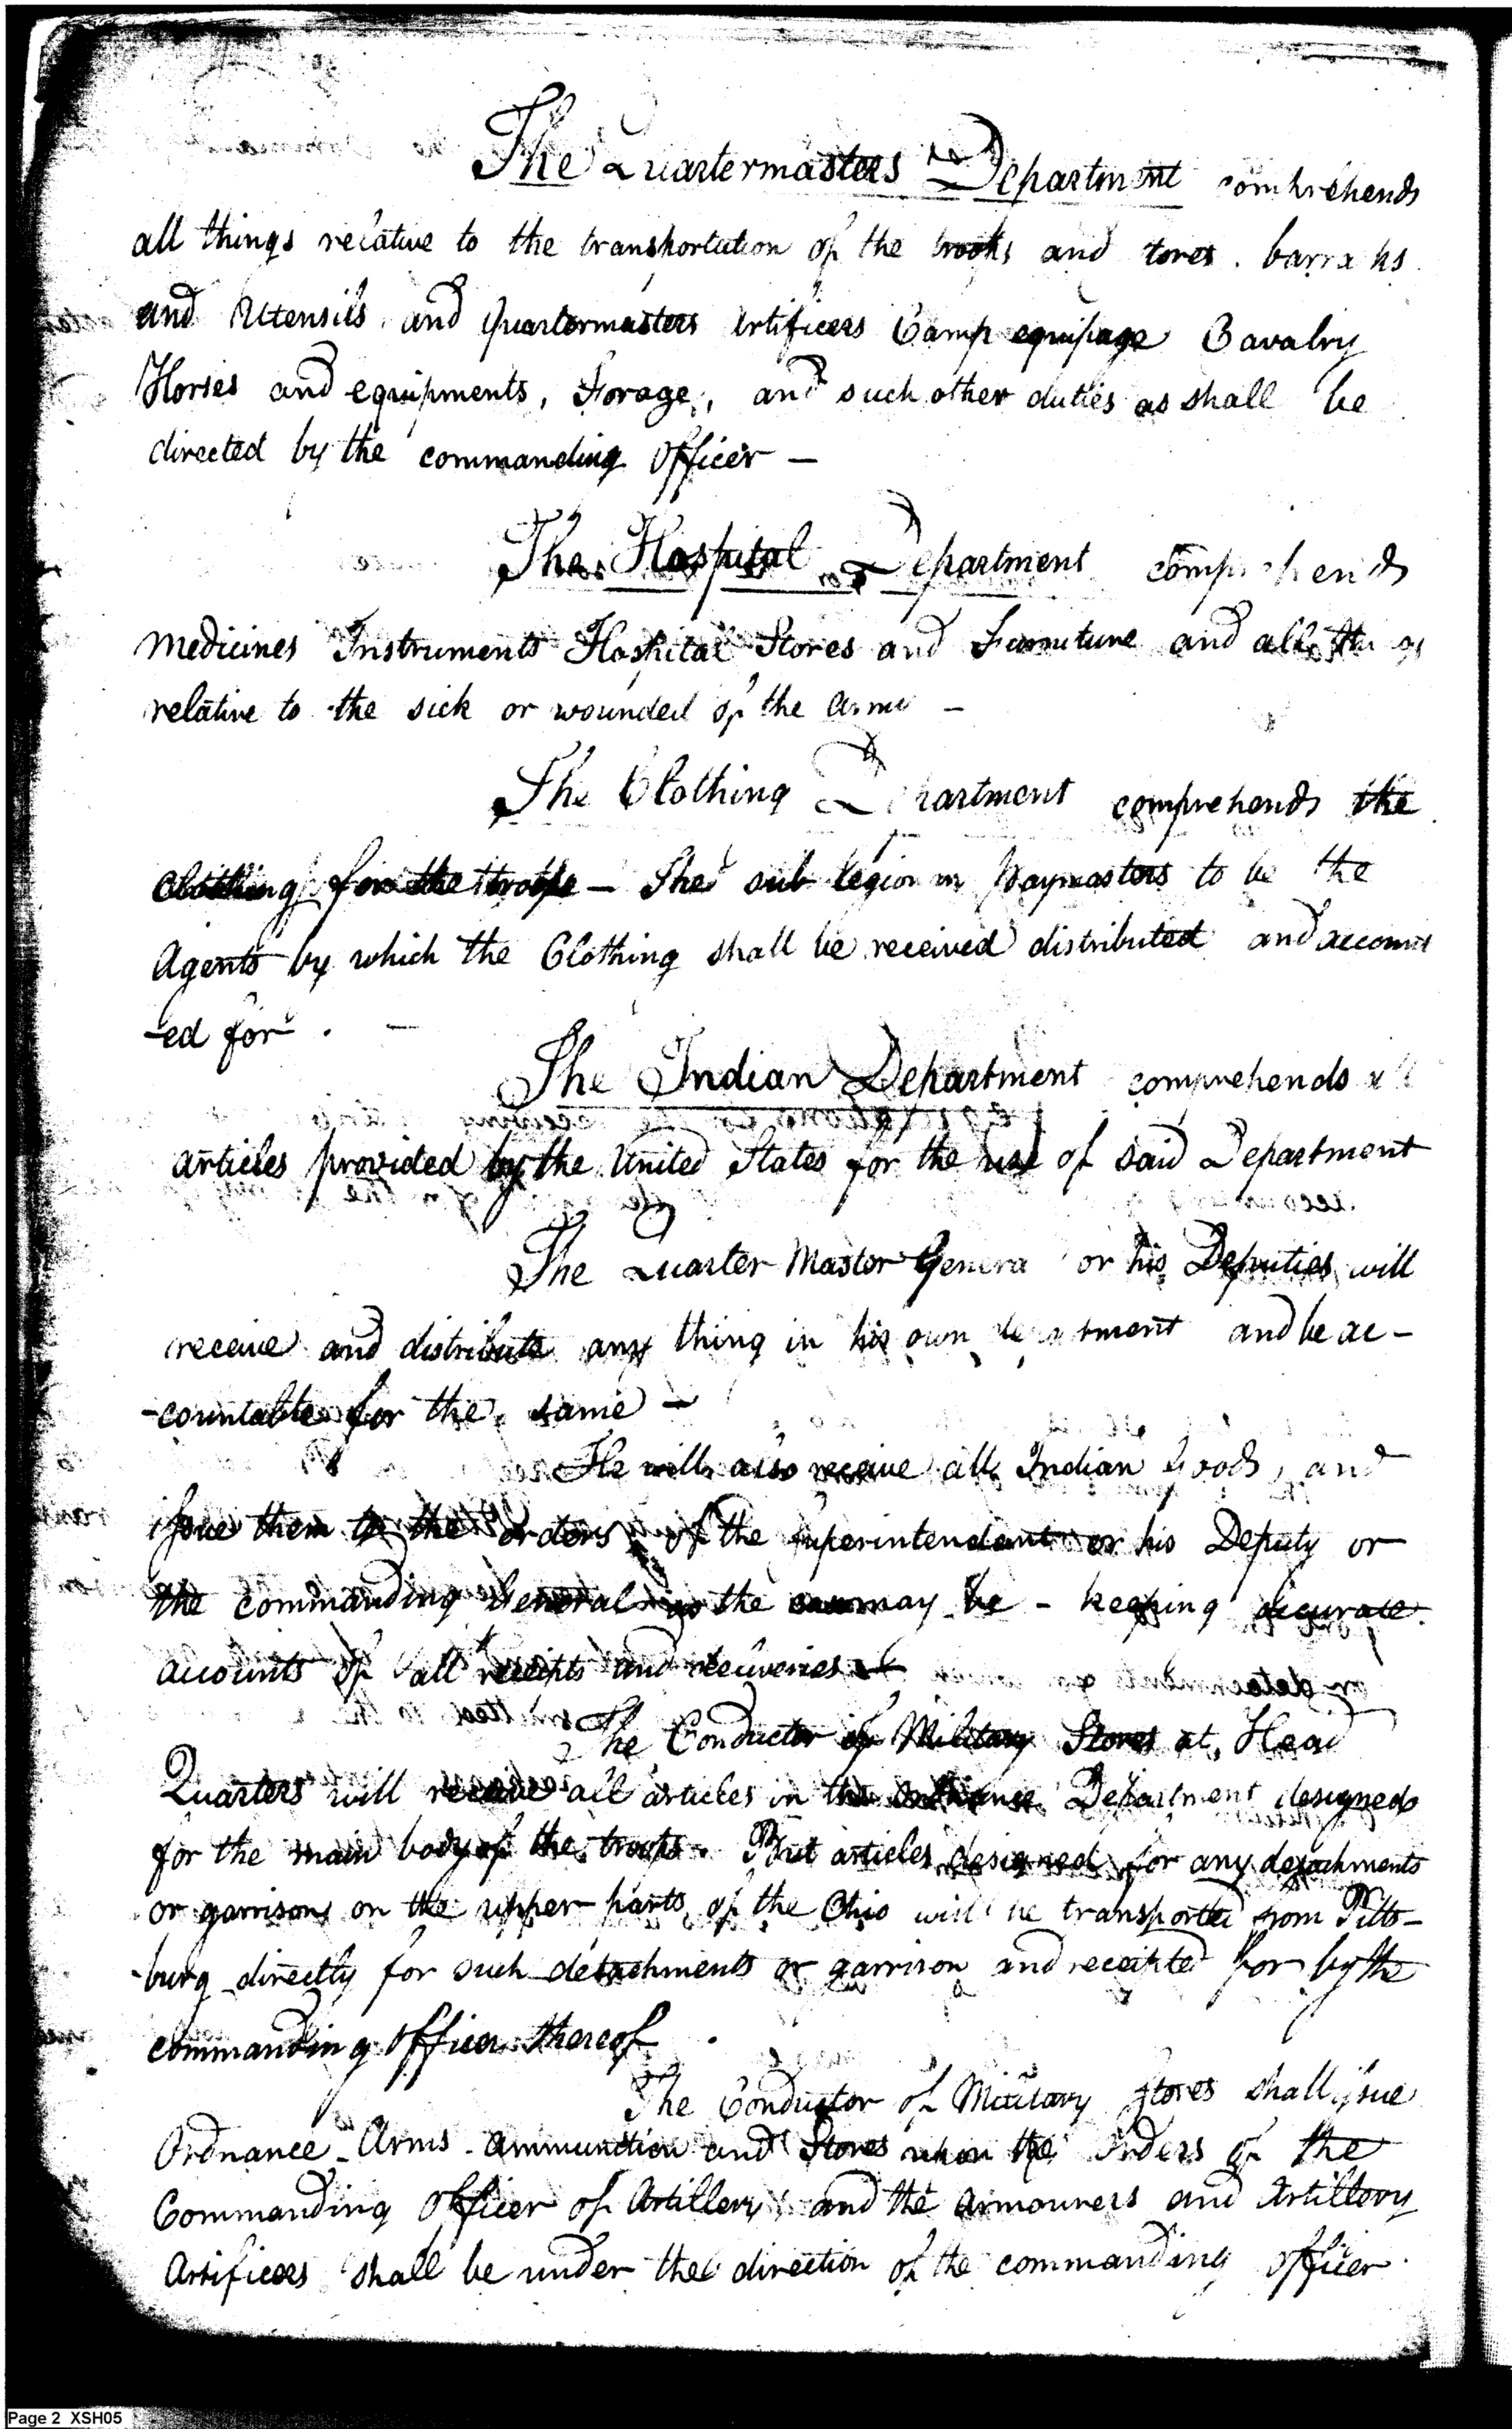 The Quartermasters Department comprehends
all things relative to the transportation of the troops and stores. barracks
and Utensils, and Quartermasters Artificers Camp equipage Cavalry
Horses and equipments, Forage, and such other duties as shall be
directed by the commanding Officer —
The Hospital Department comprehends
medicines Instruments Hospital Stores and Furniture and all things
relative to the sick or wounded of the army —
The Clothing Department comprehends the
Clothing for the troops — The sub legionary Paymasters to be the
Agents by which the Clothing shall be received distributed and account
-ed for. —
The Indian Department comprehends all
articles provided by the United States for the use of said Department
The Quarter Master General or his Deputies will
receive and distribute any thing in his own department and be ac-
-countable for the same —
He will also receive all Indian Goods, and
issue them to the orders of the superintendant or his Deputy or
the commanding General as the case may be - keeping accurate
accounts of all receipts and deliveries
The Conductor of Military Stores at Head
Quarters will receive all articles in the Ordnance Department designed
for the main body of the troops. But articles designed for any detachments
or garrisons on the upper parts of the Ohio will be transported from Pitts-
-burg directly for such detachments or garrison and receipted for by the
commanding Officer thereof.
The Conductor of Military Stores shall issue
Ordnance Arms Ammunition and Stores upon the Orders of the
Commanding Officer of Artillery; and the Armourers and Artillery
Artificers shall be under the direction of the commanding Officer
Page 2 XSH05